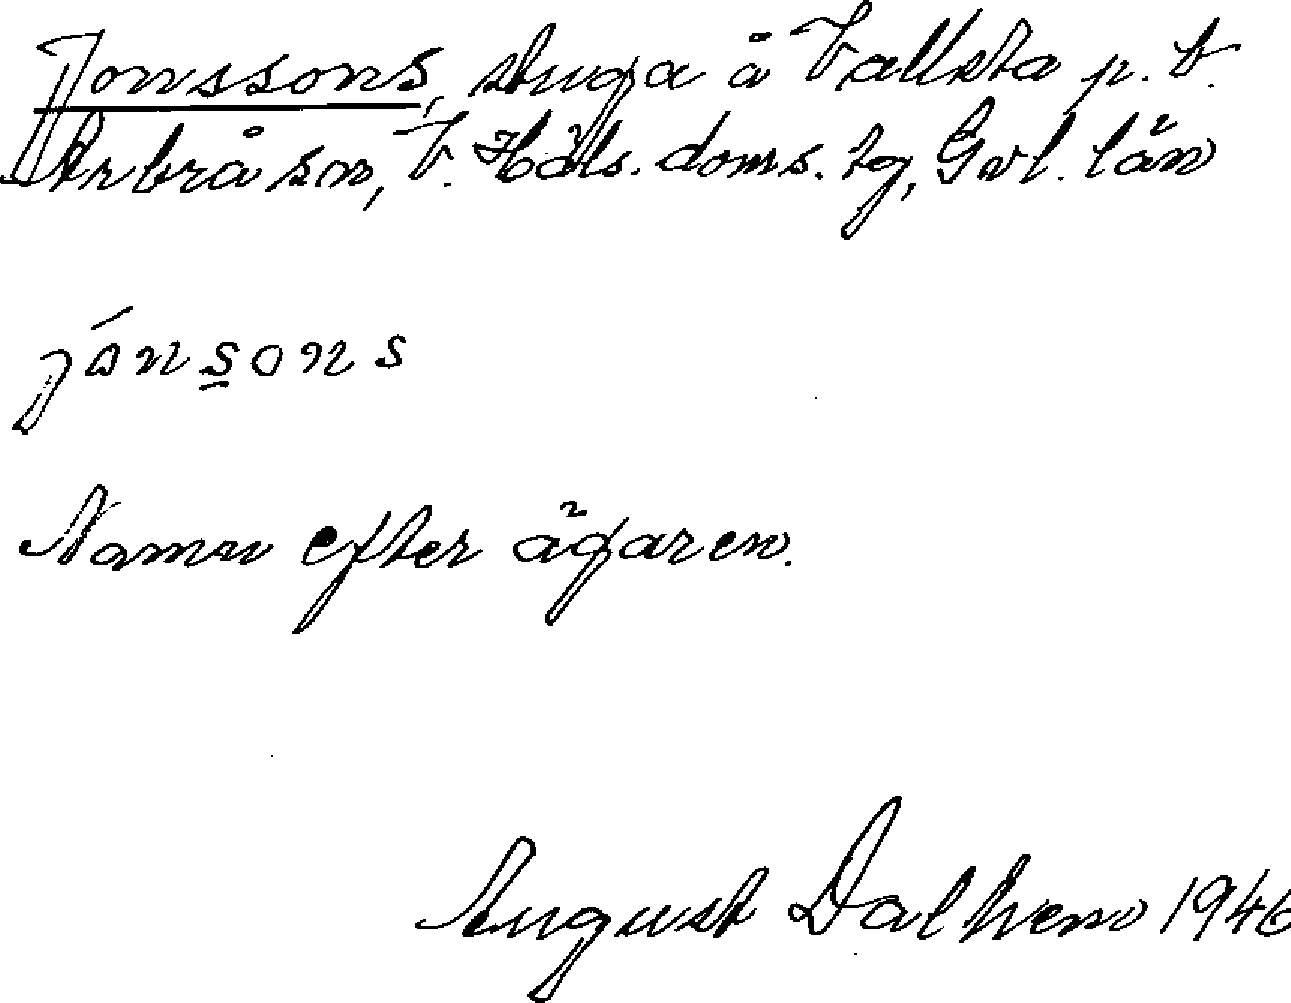 Jonssons, stuga å Vallsta p. t.
Arbrå sn, V. Häls. doms. tg, Gvl. län
jónsons
Namn efter ägaren.
August Dalhem 1946